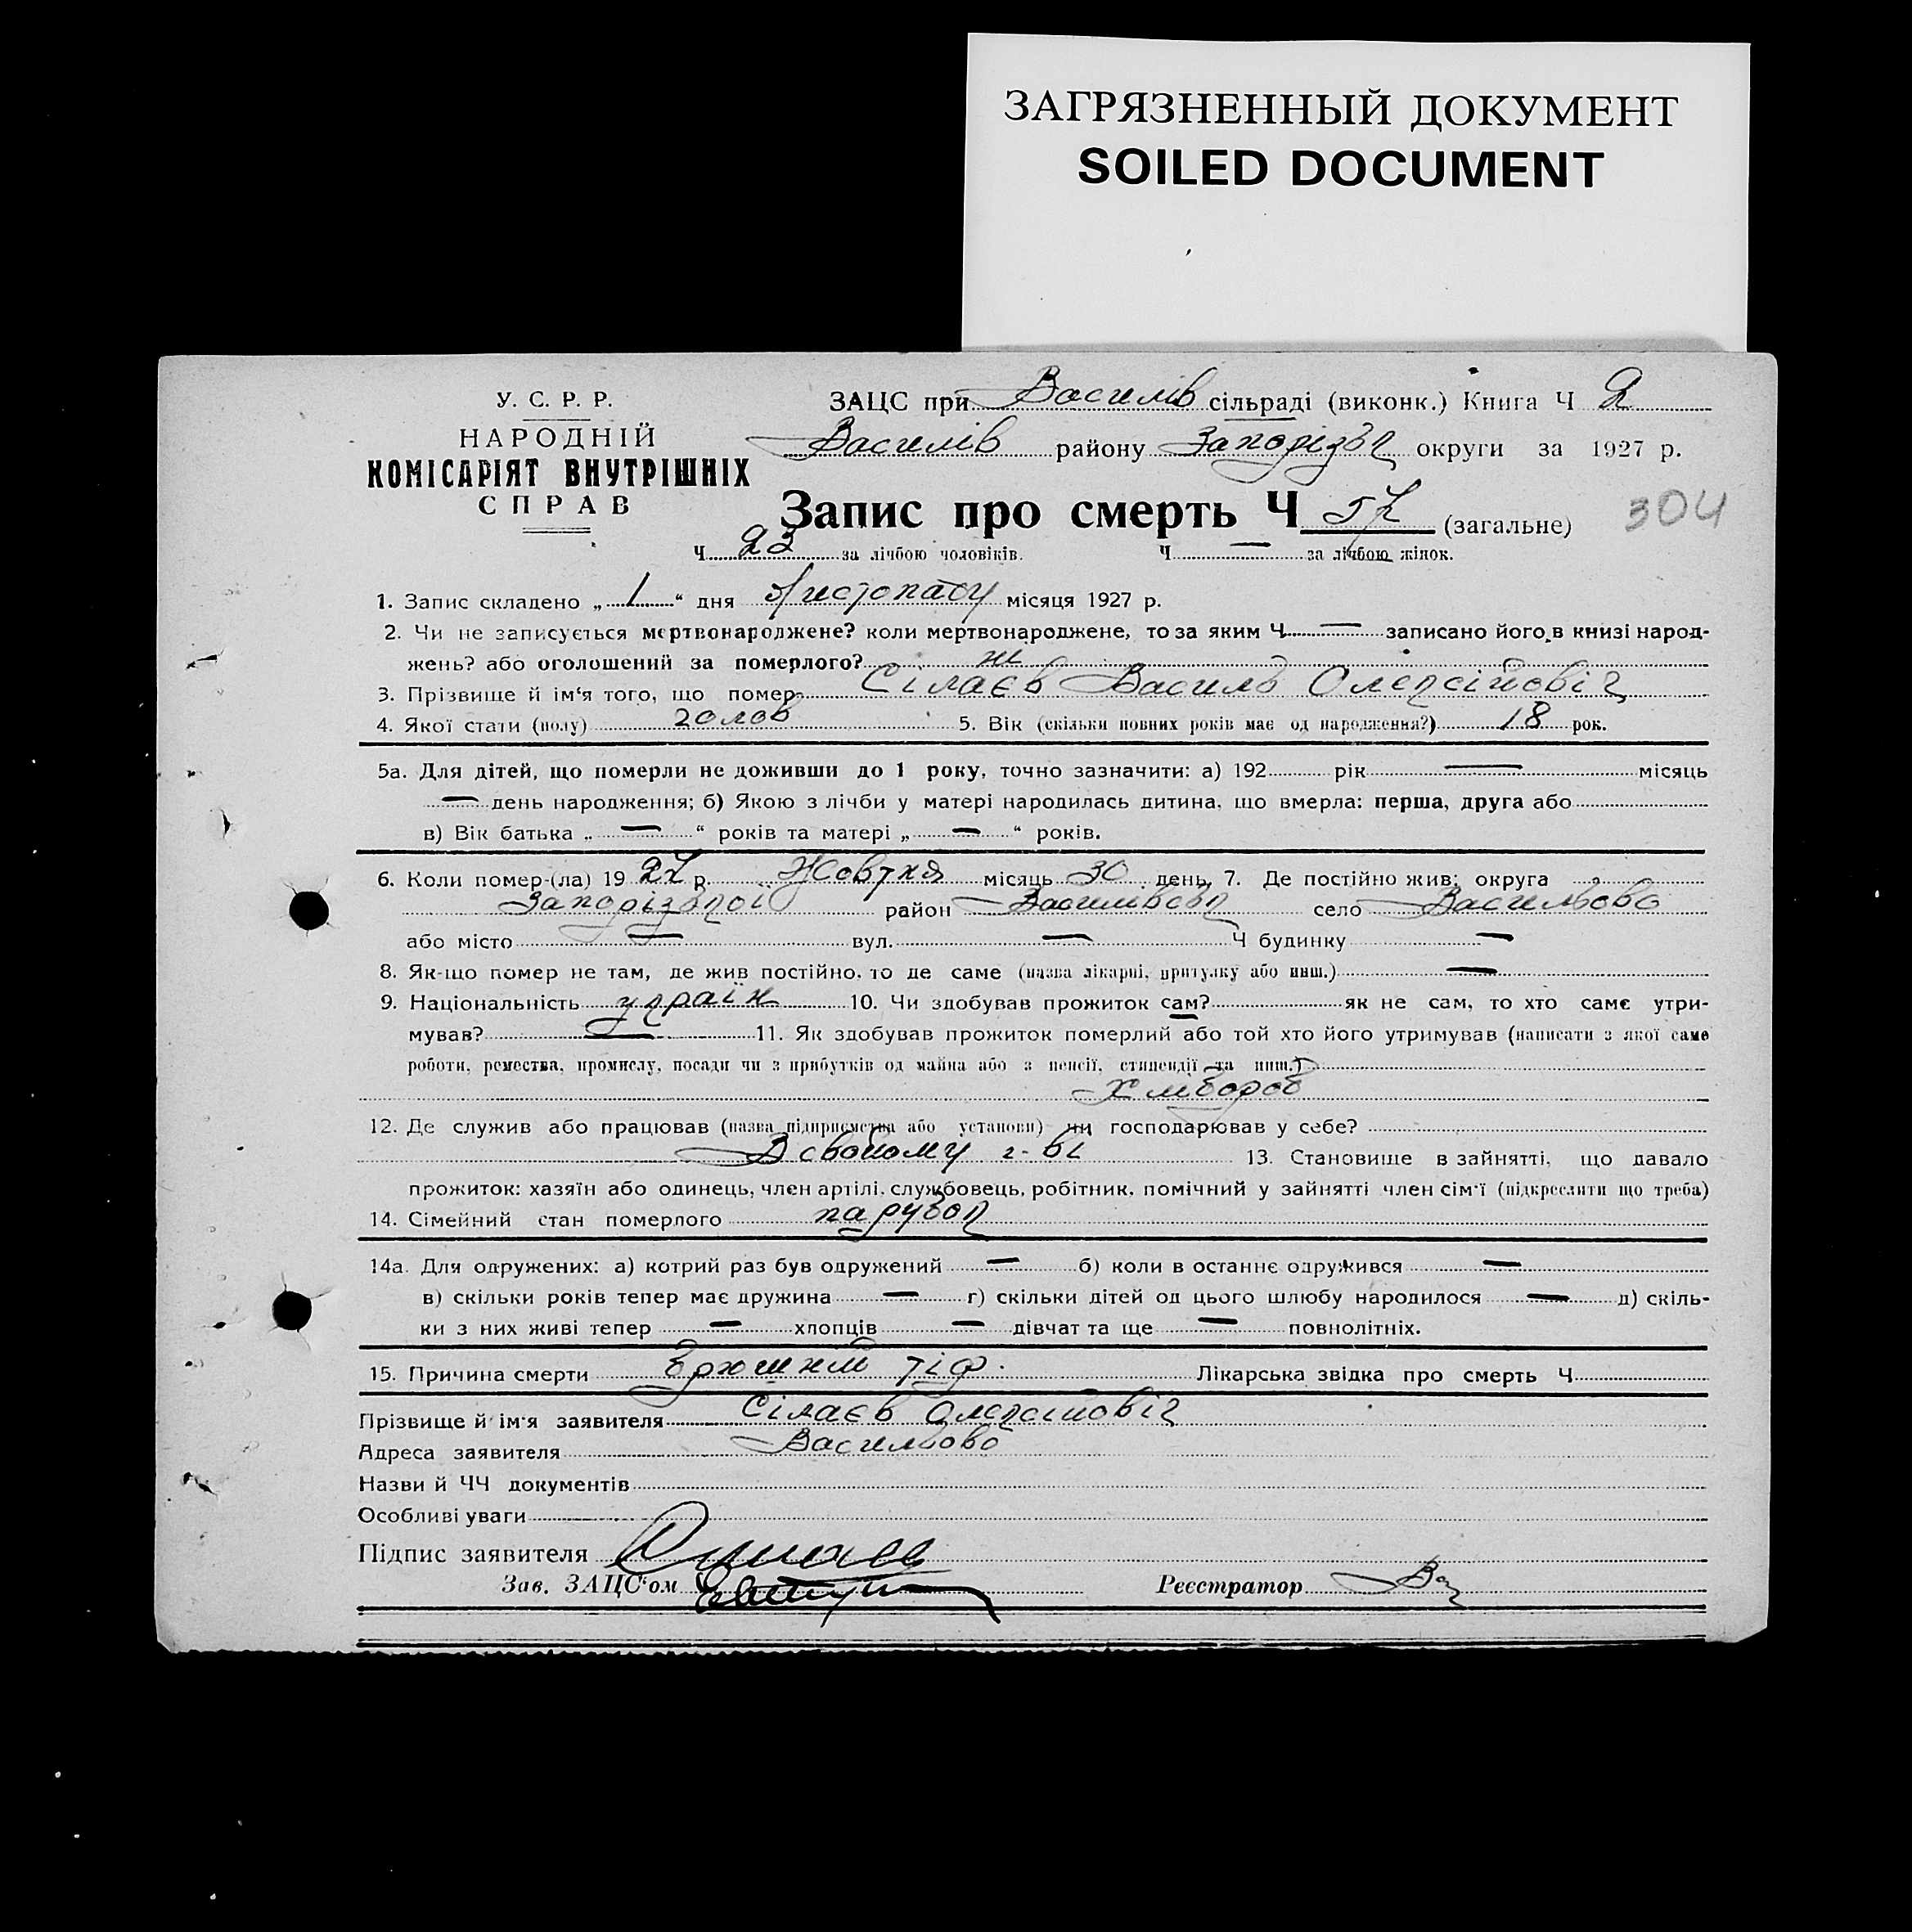 ЗАГРЯЗНЕННЫЙ ДОКУМЕНТ
SOILED DOCUMENT
У. С. Р. Р.
НАРОДНІЙ
КОМІСАРІЯТ ВНУТРІШНІХ
СПРАВ
ЗАЦС при Василів сільраді (виконк.) Книга Ч 2
Василів району Запорізьк округи за 1927 р.
Запис про смерть Ч 57 (загальне) 304
Ч 23 за лічбою чоловіків. Ч — за лічбою жінок.
1. Запис складено „ 1 “ дня Листопаду місяця 1927 р.
2. Чи не записується мертвонароджене? коли мертвонароджене, то за яким Ч — записано його в книзі народ-
жень? або оголошений за померлого? ні
3. Прізвище й ім'я того, що помер Сілаєв Василь Олексійовіч
4. Якої стати (полу) чолов 5. Вік (скільки повних років має од народження?) 18 рок.
5а. Для дітей, що померли не доживши до 1 року, точно зазначити: а) 192 рік — місяць
— день народження; б) Якою з лічби у матері народилась дитина, що вмерла: перша, друга або
в) Вік батька „ — “ років та матері „ — “ років.
6. Коли помер-(ла) 1927 р. Жовтня місяць 30 день, 7. Де постійно жив: округа
Запорізької район Василівськ село Васильово
або місто — вул. — Ч будинку —
8. Як-що помер не там, де жив постійно, то де саме (назва лікарні, притулку або инш.) —
9. Національність україн 10. Чи здобував прожиток сам? як не сам, то хто саме утри-
мував? — 11. Як здобував прожиток померлий або той хто його утримував (написати з якої саме
роботи, ремества, промислу, посади чи з прибутків од майна або з пенсії, стипендії та инш.)
Хлібороб
12. Де служив або працював (назва підприємства або установи) чи господарював у себе?
В свойому г-ві 13. Становище в зайнятті, що давало
прожиток: хазяїн або одинець, член артілі, службовець, робітник, помічний у зайнятті член сім'ї (підкреслити що треба)
14. Сімейний стан померлого парубок
14а. Для одружених: а) котрий раз був одружений — б) коли в останнє одружився —
в) скільки років тепер має дружина — г) скільки дітей од цього шлюбу народилося — д) скіль-
ки з них живі тепер — хлопців — дівчат та ще — повнолітніх.
15. Причина смерти Брюшний тіф. Лікарська звідка про смерть Ч
Прізвище й ім'я заявителя Сілаєв Олексійовіч
Адреса заявителя Васильово
Назви й ЧЧ документів
Особливі уваги
Підпис заявителя
Зав. ЗАЦС'ом Реєстратор